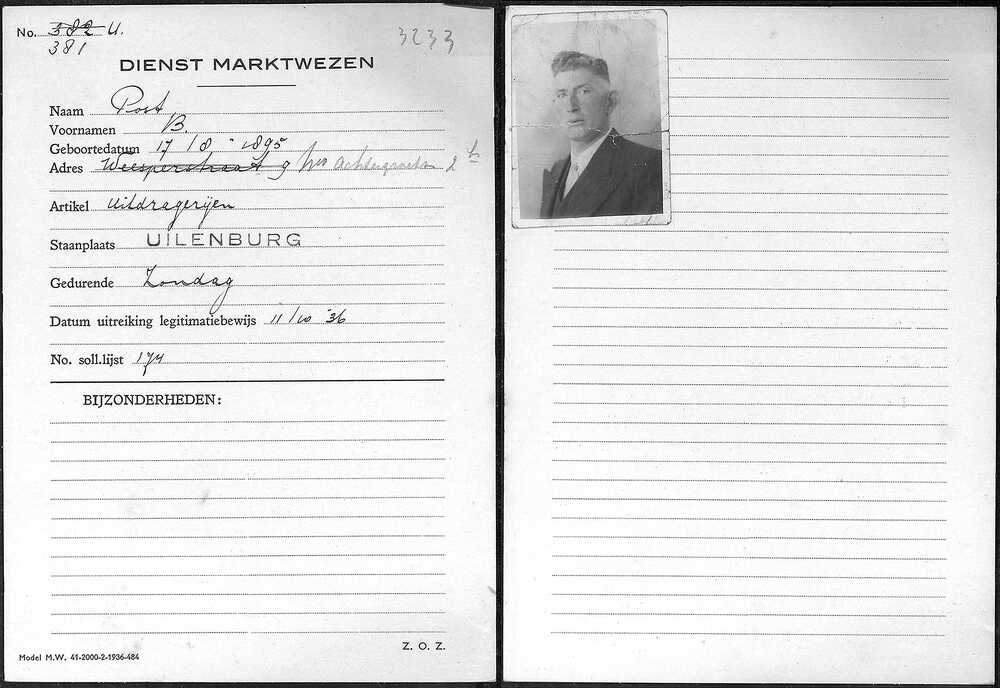 No. 382 U.
381
3233
DIENST MARKTWEZEN
Naam Post
Voornamen B.
Geboortedatum 17/8-1895
Adres Weesperstraat 9 hs Achtergracht 2 h
Artikel Uitdragerijen
Staanplaats UILENBURG
Gedurende Zondag
Datum uitreiking legitimatiebewijs 11/10 '36
No. soll.lijst 174
BIJZONDERHEDEN:
Z. O. Z.
Model M.W. 41-2000-2-1936-484